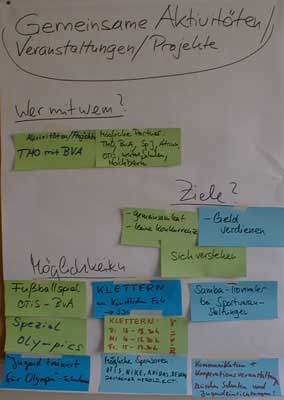 Gemeinsame Aktivitäten/
Veranstaltungen/Projekte
Wer mit wem?
Aktivitäten/Projekte
THO mit BVA
Mögliche Partner:
THO, BVA, SpJ, Atrium,
OTIS,
Ziele?
- gemeinsam
- keine Konkurrenz
- Geld
verdienen
Sich verstehen
Möglichkeiten
Fußballspiel
OTIS - BVA
KLETTERN
am Künstlichen Fels
Samba-Trommler
bei Sportveran-
staltungen
Spezial
Olympics
KLETTERN:
Jugend trainiert
für Olympia
Mögliche Sponsoren
OTIS, NIKE, ADIDAS,
Kommunikation +
Kooperationsveranstaltung
zwischen Schulen und
Jugendeinrichtungen!